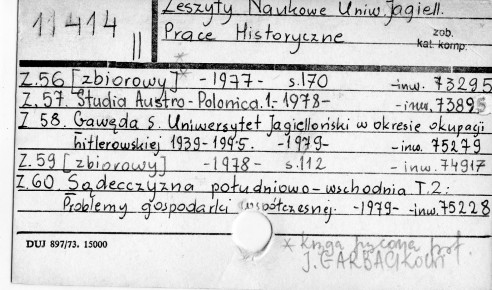 Zeszyty Naukowe Uniw. Jagiell.
11414 || Prace Historyczne zob. kat. komp.
Z.56 [zbiorowy]* -1977- s.170 -inw. 73295
Z.57. Studia Austro-Polonica.1.-1978- -inw. 73895
Z 58. Gawęda S. Uniwersytet Jagielloński w okresie okupacji
hitlerowskiej 1939-1945. -1979- -inw. 75279
Z.59 [zbiorowy] -1978- s.112 -inw. 74917
Z.60. Sądecczyzna południowo-wschodnia T.2:
Problemy gospodarki współczesnej. -1979- inw. 75228
DUJ 897/73. 15000
* księga
J.